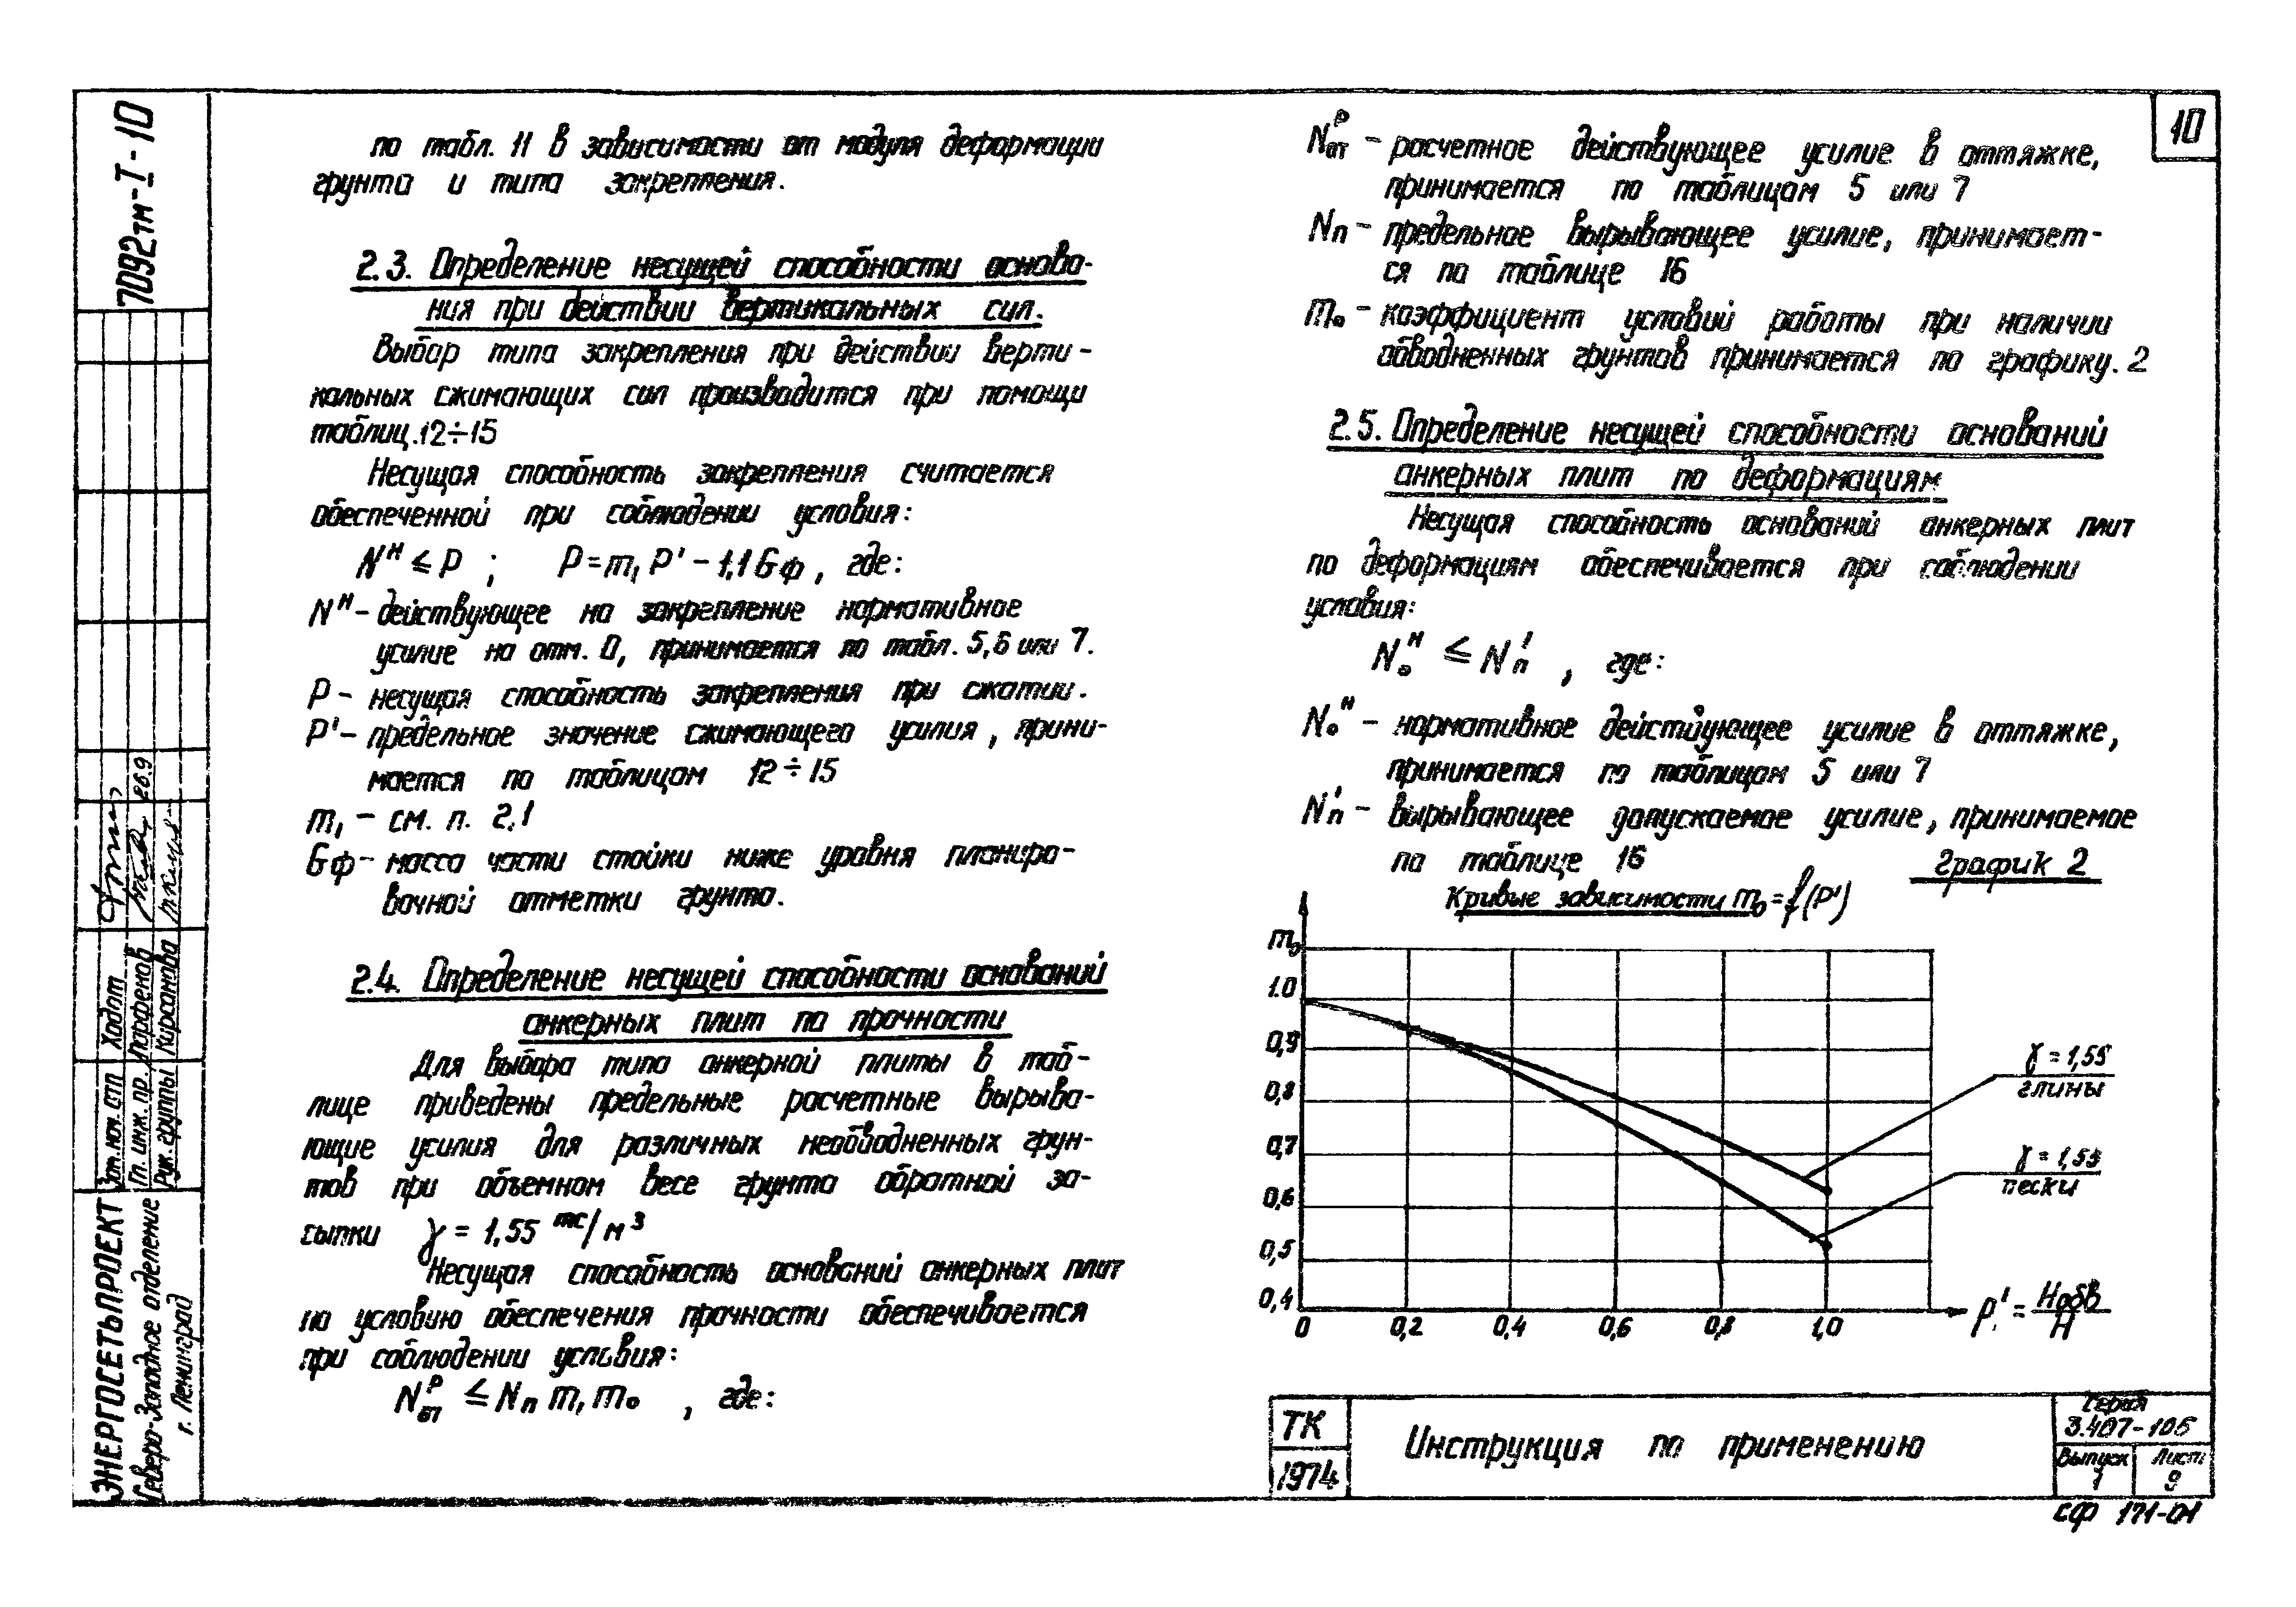 7092тм-I-10
10
по табл. 11 в зависимости от модуля деформации
грунта и типа закрепления.
2.3. Определение несущей способности основа-
ния при действии вертикальных сил.
Выбор типа закрепления при действии верти-
кальных сжимающих сил производится при помощи
таблиц.12÷15
Несущая способность закрепления считается
обеспеченной при соблюдении условия:
Nᴴ ≤ P ; P = m₁ P' - 1,1 Gф , где:
Nᴴ - действующее на закрепление нормативное
усилие на отм. 0, принимается по табл. 5,6 или 7.
P - несущая способность закрепления при сжатии.
P' - предельное значение сжимающего усилия, прини-
мается по таблицам 12 ÷ 15
m₁ - см. п. 2.1
Gф - масса части стойки ниже уровня планиро-
вочной отметки грунта.
2.4. Определение несущей способности оснований
анкерных плит по прочности
Для выбора типа анкерной плиты в таб-
лице приведены предельные расчетные вырыва-
ющие усилия для различных необводненных грун-
тов при объемном весе грунта обратной за-
сыпки γ = 1,55 тс/м³
Несущая способность оснований анкерных плит
по условию обеспечения прочности обеспечивается
при соблюдении условия:
Nᴾот ≤ Nп m₁ m₀ , где:
Nᴾот - расчетное действующее усилие в оттяжке,
принимается по таблицам 5 или 7
Nп - предельное вырывающее усилие, принимает-
ся по таблице 16
m₀ - коэффициент условий работы при наличии
обводненных грунтов принимается по графику. 2
2.5. Определение несущей способности оснований
анкерных плит по деформациям
Несущая способность оснований анкерных плит
по деформациям обеспечивается при соблюдении
условия:
N₀ᴴ ≤ N'п , где:
N₀ᴴ - нормативное действующее усилие в оттяжке,
принимается по таблицам 5 или 7
N'п - вырывающее допускаемое усилие, принимаемое
по таблице 16
График 2
Кривые зависимости m₀ = f(P')
m₀
1.0
0,9
0,8
0,7
0,6
0,5
0,4
0 0,2 0,4 0,6 0,8 1,0
γ = 1,55
глины
γ = 1,55
пески
P' = Hобв/H
26.9
Зам. нач. стп Ходот
Гл. инж. пр. Парфенов
Рук. группы Киранова
ЭНЕРГОСЕТЬПРОЕКТ
Северо-Западное отделение
г. Ленинград
ТК
1974
Инструкция по применению
Серия
3.407-106
Выпуск
1
Лист
9
СФ 171-01